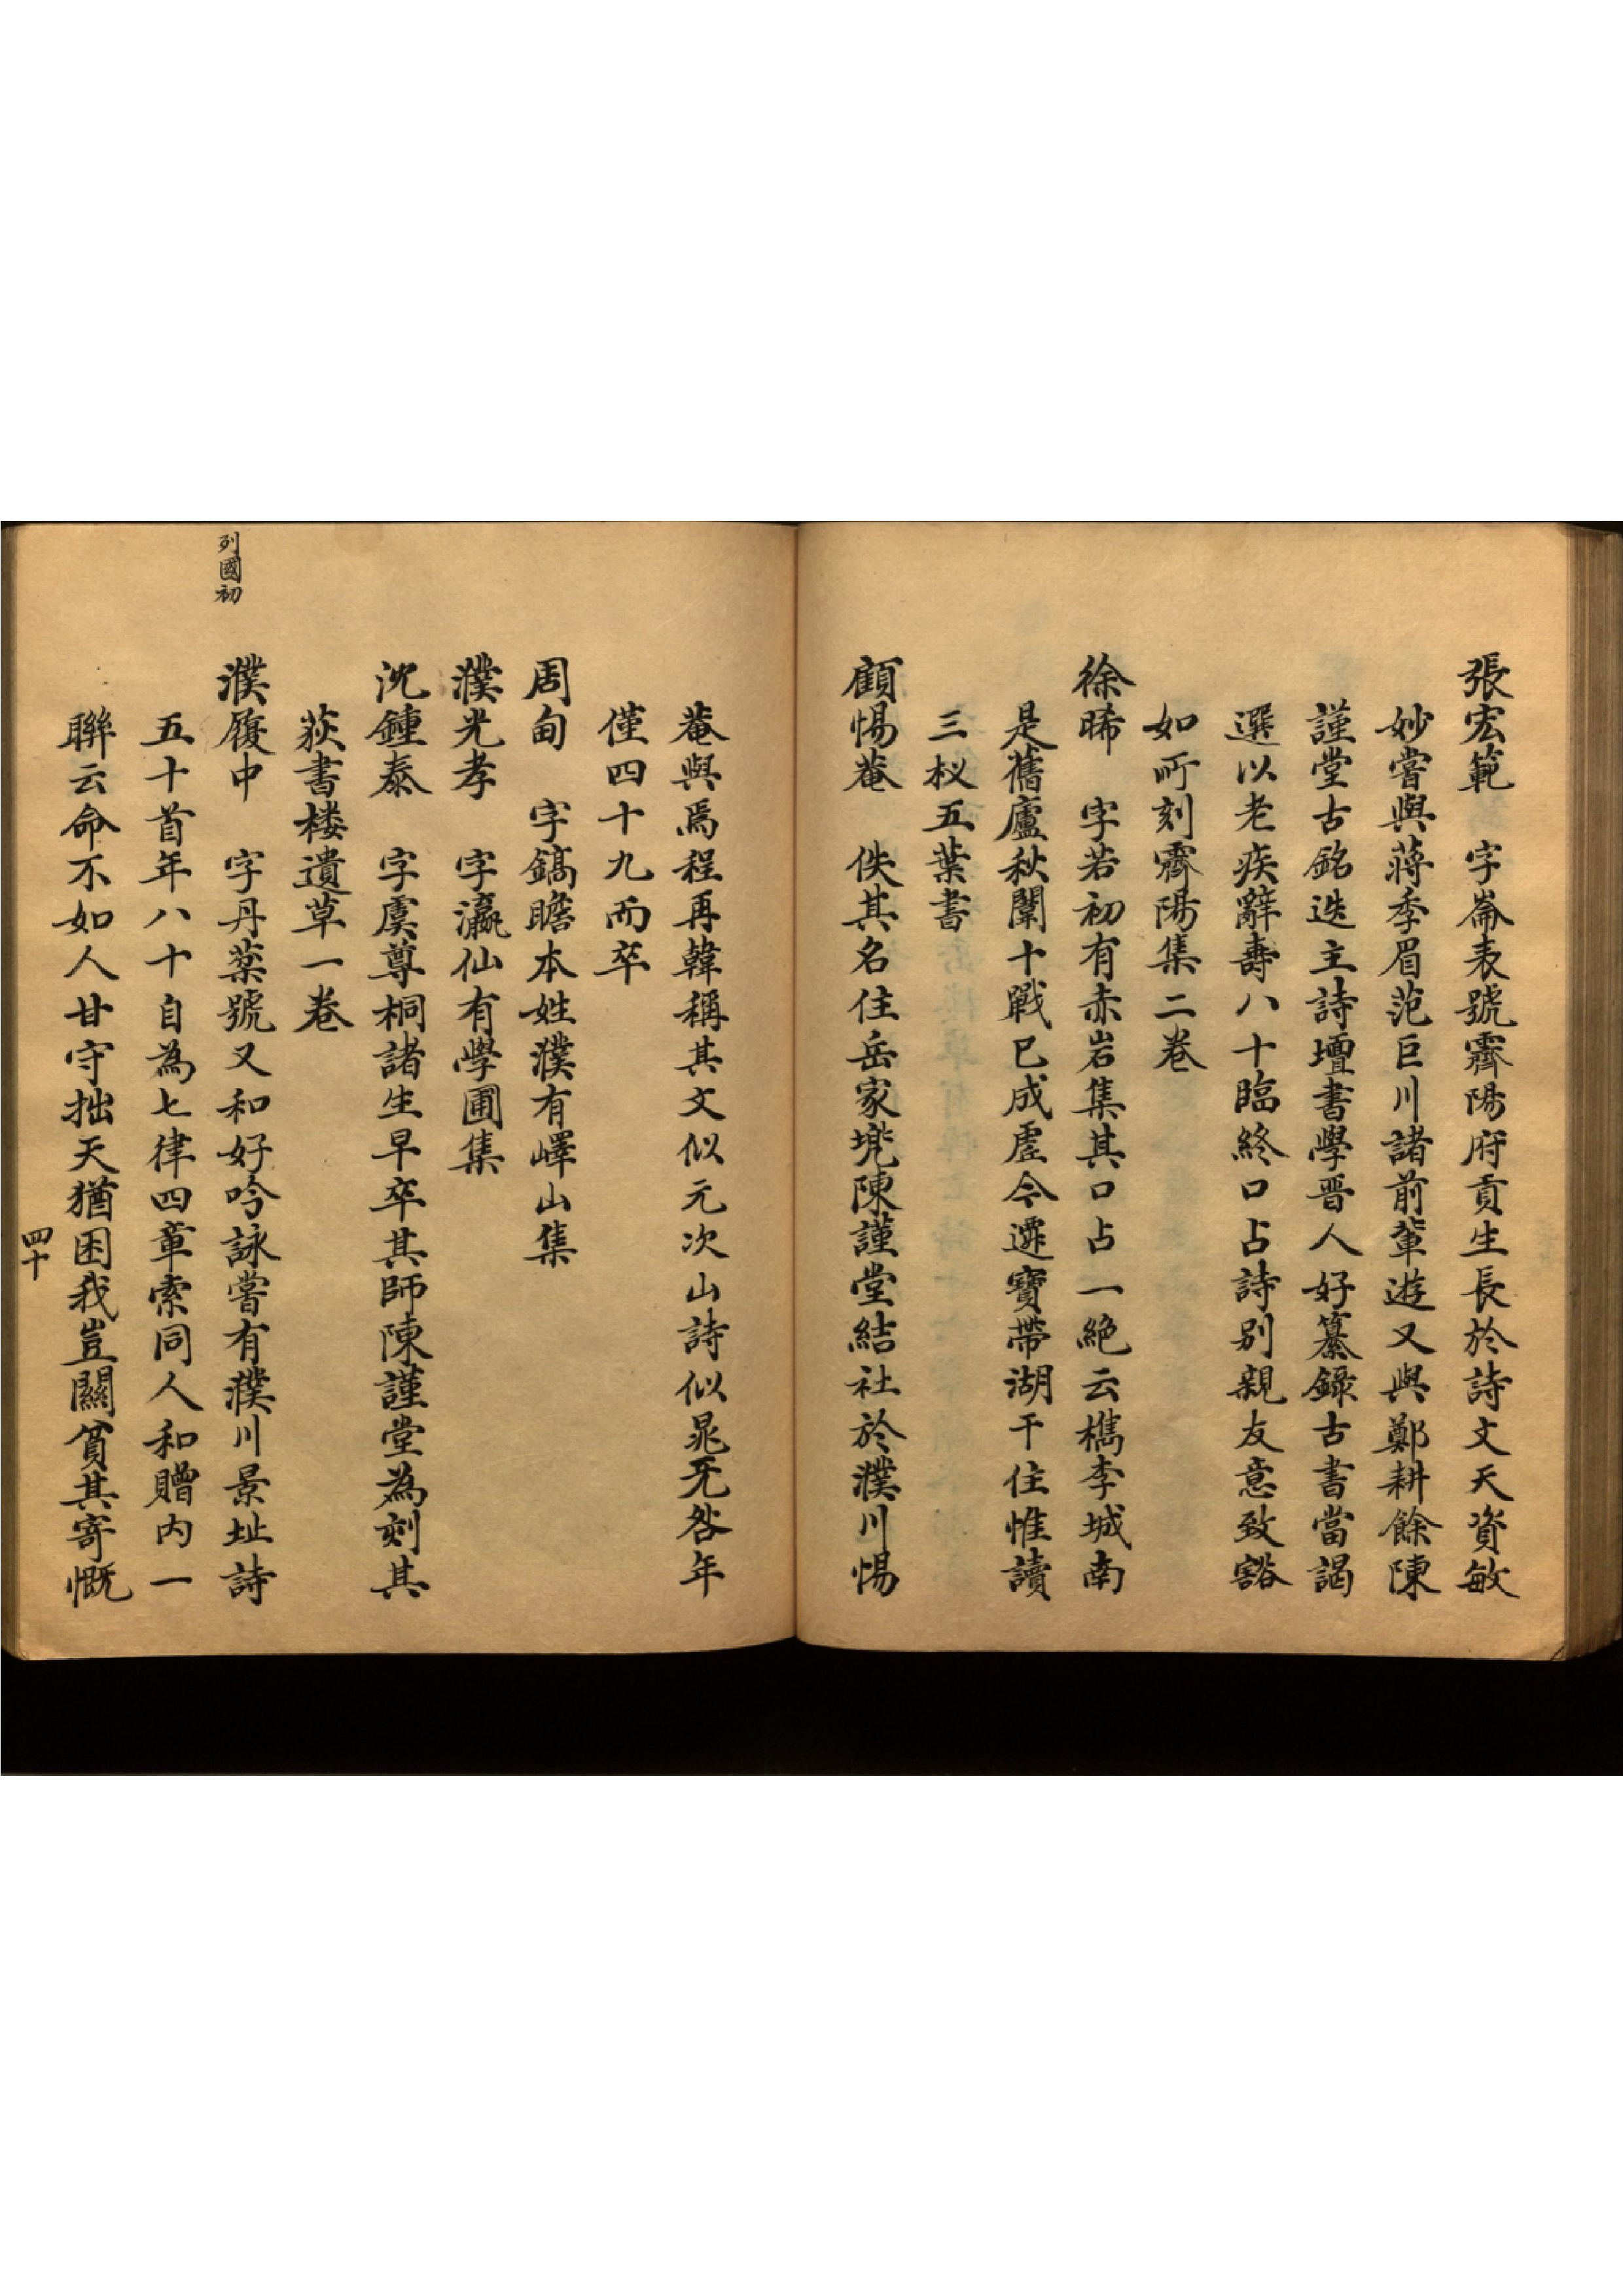 張宏範　字崙表號霽陽府貢生長於詩文天資敏
妙嘗與蔣季眉范巨川諸前輩遊又與鄭耕餘陳
謹堂古銘迭主詩壇書學晋人好纂錄古書當謁
選以老疾辭壽八十臨終口占詩别親友意致豁
如所刻霽陽集二巻
徐晞　字若初有赤岩集其口占一絶云檇李城南
是舊廬秋闈十戰已成虛今遷寶帶湖干住惟讀
三杈五葉書
顧惕菴　佚其名住岳家堍陳謹堂結社於濮川惕
菴與焉程再韓稱其文似元次山詩似晁无咎年
僅四十九而卒
周甸　字鎬瞻本姓濮有嶧山集
濮光孝　字瀛仙有學圃集
沈鍾泰　字虞尊桐諸生早卒其師陳謹堂為刻其
荻書楼遺草一巻
列國初
濮履中　字丹蘂號又和好吟詠嘗有濮川景址詩
五十首年八十自為七律四章索同人和贈内一
聯云命不如人甘守拙天猶困我豈關貧其寄慨
四十